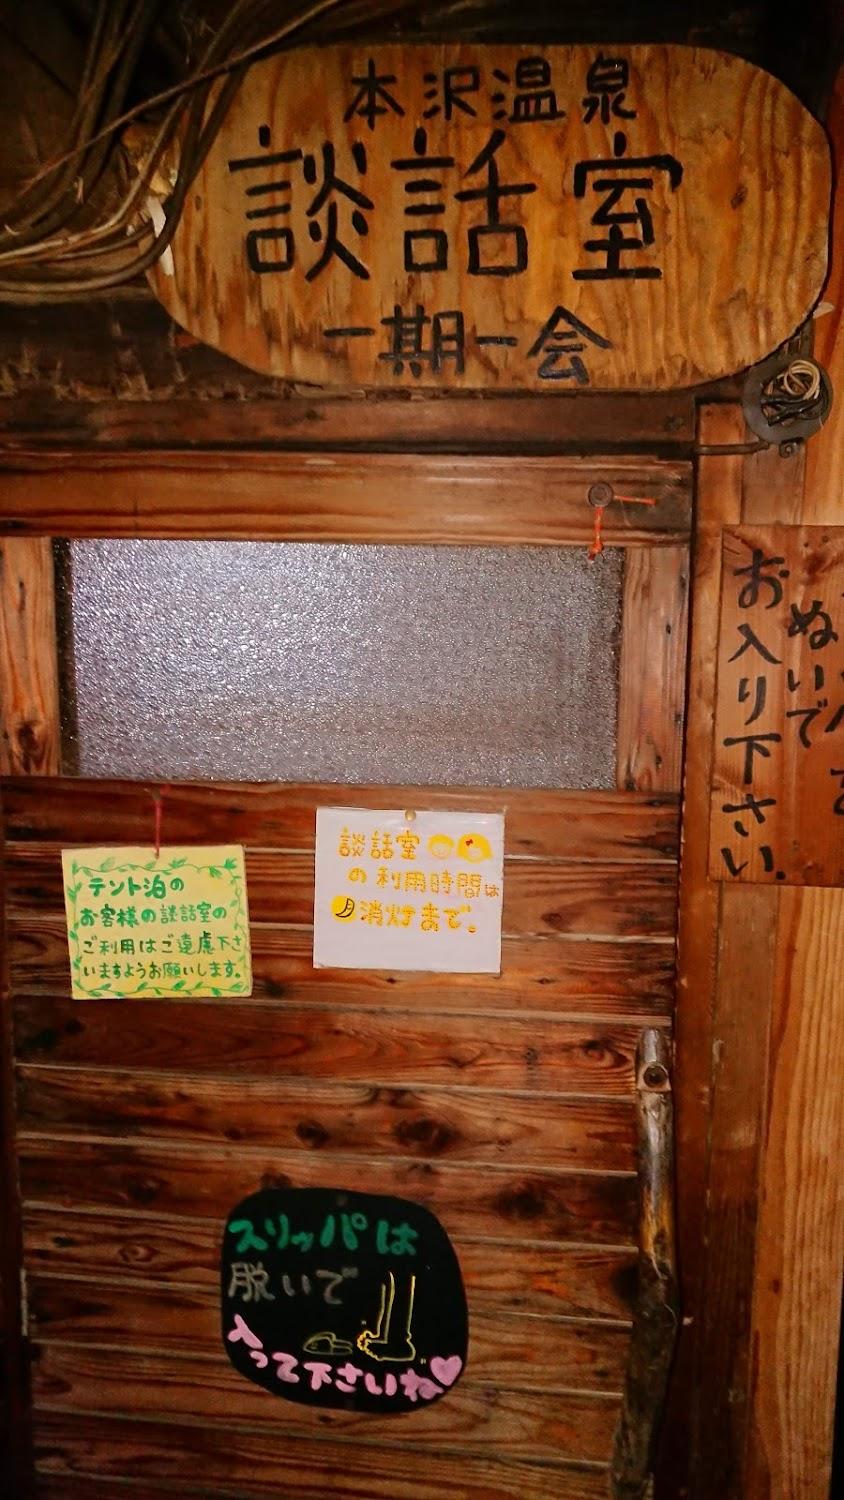 本沢温泉
談話室
一期一会
ぬいで
お入り下さい.
テント泊の
お客様の談話室の
ご利用はご遠慮下さ
いますようお願いします。
談話室
の利用時間は
消灯まで。
スリッパは
脱いで
入って下さいね